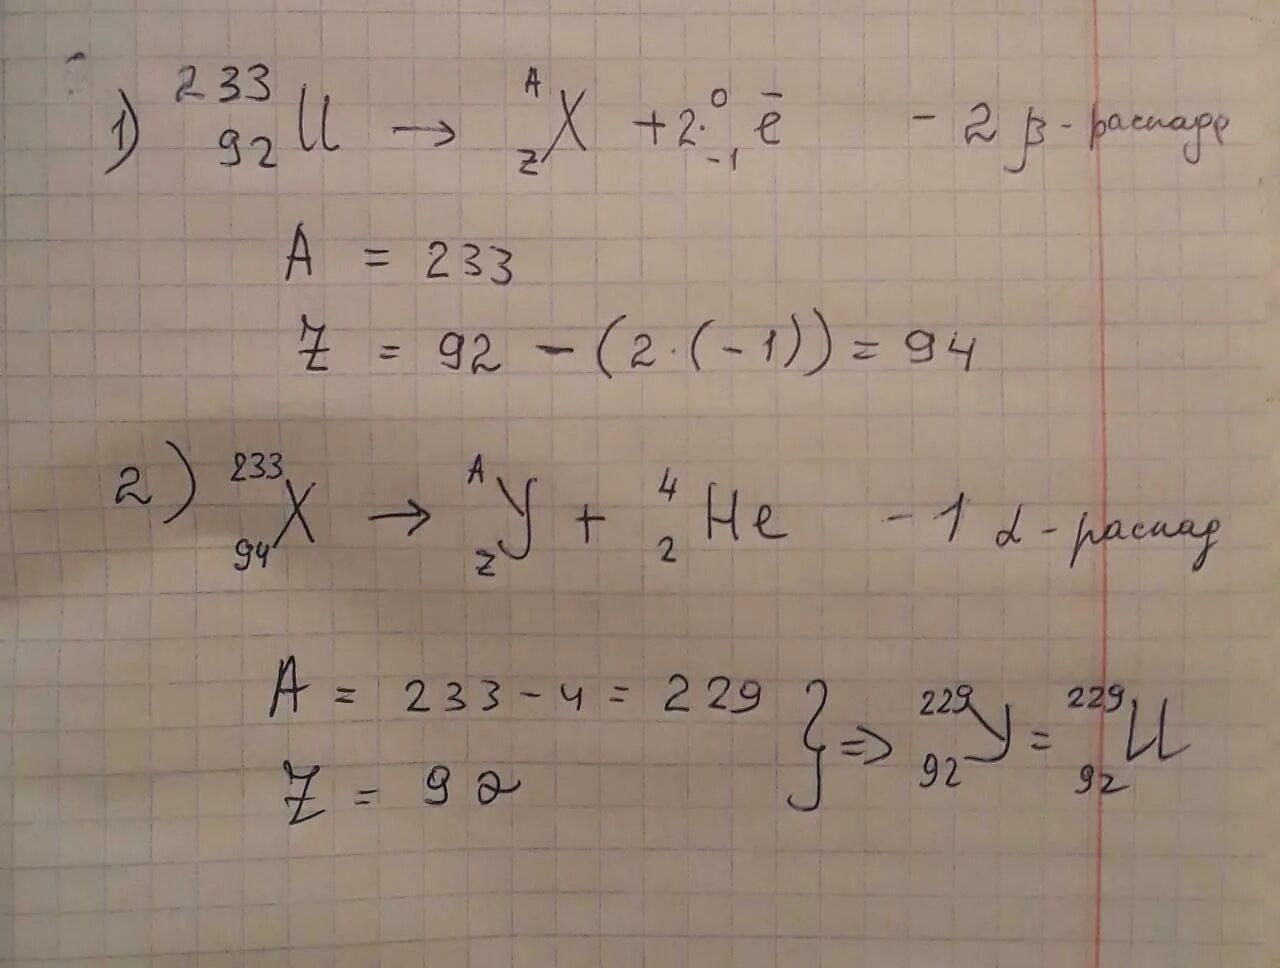 1) ²³³₉₂U → ᴬ_Z X + 2·⁰₋₁ē - 2 β-распада
A = 233
Z = 92 - (2·(-1)) = 94
2) ²³³₉₄X → ᴬ_Z Y + ⁴₂He - 1 α-распад
A = 233 - 4 = 229
Z = 92
} => ²²⁹₉₂Y = ²²⁹₉₂U